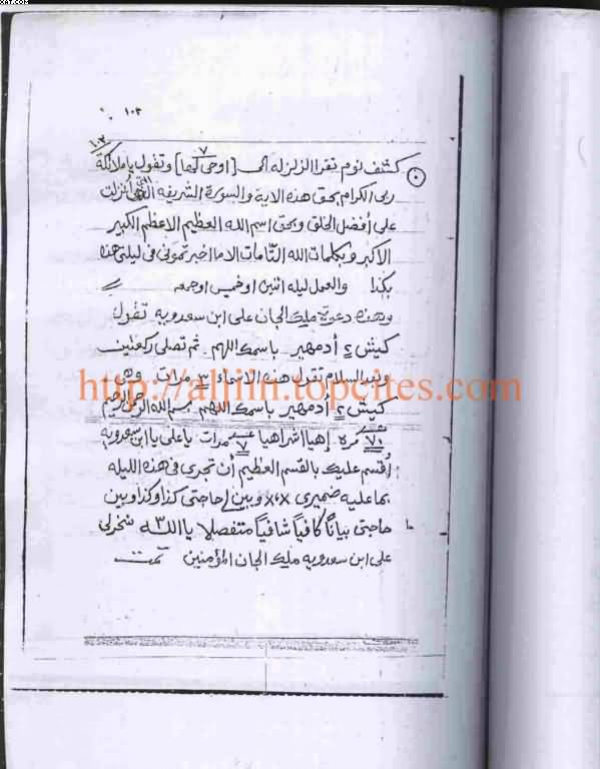 ١٠٣
١٠٣
كشف نوم تقرا الزلزله الى [اوحى لها] ٧ وتقول يا ملائكة
ربى الكرام بحق هذه الاية والسورة الشريفه التى أنزلت
على أفضل الخلق وبحق اسم الله العظيم الاعظم الكبير
الاكبر وبكلمات الله التامات الا ما اخبرتمونى فى ليلتى هذه
بكذا والعمل ليله اثنين اوخميس اوجمعه
وهذه دعوة ملك الجان على ابن سعدويه تقول
كيش ٢ أدمهير باسمك اللهم ثم تصلى ركعتين
وبعد السلام تقول هذه الاسماء ٣ مرات وهى
كيش ٢ أدمهير باسمك اللهم بسم الله الرحمن الرحيم
٧٠ مره إهيا اشراهيا ٧ مرات يا على يا ابن سعدويه
أقسم عليك بالقسم العظيم أن تجرى فى هذه الليله
بما عليه ضميرى وبين لى حاجتى كذا وكذا وبين
حاجتى بياناً كافياً شافياً متفصلا يا الله ٣ سخر لى
على ابن سعدويه ملك الجان المؤمنين تمت
http://aljiin.topcites.com